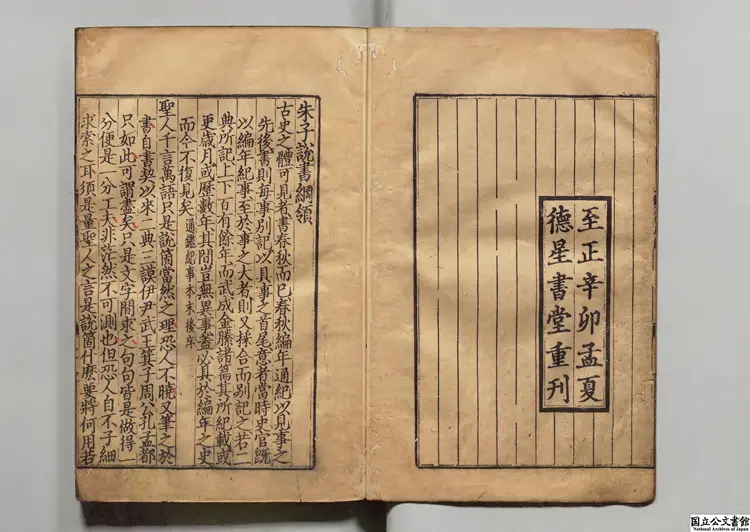 至正辛卯孟夏
德星書堂重刊
朱子說書綱領
古史之體可見者書春秋而已春秋編年通紀以見事之
先後書則每事別記以具事之首尾意者當時史官既
以編年紀事至於事之大者則又採合而別記之若二
典所記上下百有餘年而武成金縢諸篇其所紀載或
更歲月或歷數年其間豈無異事蓋以具於編年之史
而今不復見矣通鑑紀事本末後序
聖人千言萬語只是說箇當然之理恐人不曉又筆之於
書自書契以來二典三謨伊尹武王箕子周公孔孟都
只如此可謂盡矣只是文字間求之句句皆是做得一
分便是一分工夫非茫然不可測也但恐人自不子細
求索之耳須是量聖人之言是說箇什麽要將何用若
国立公文書館
National Archives of Japan